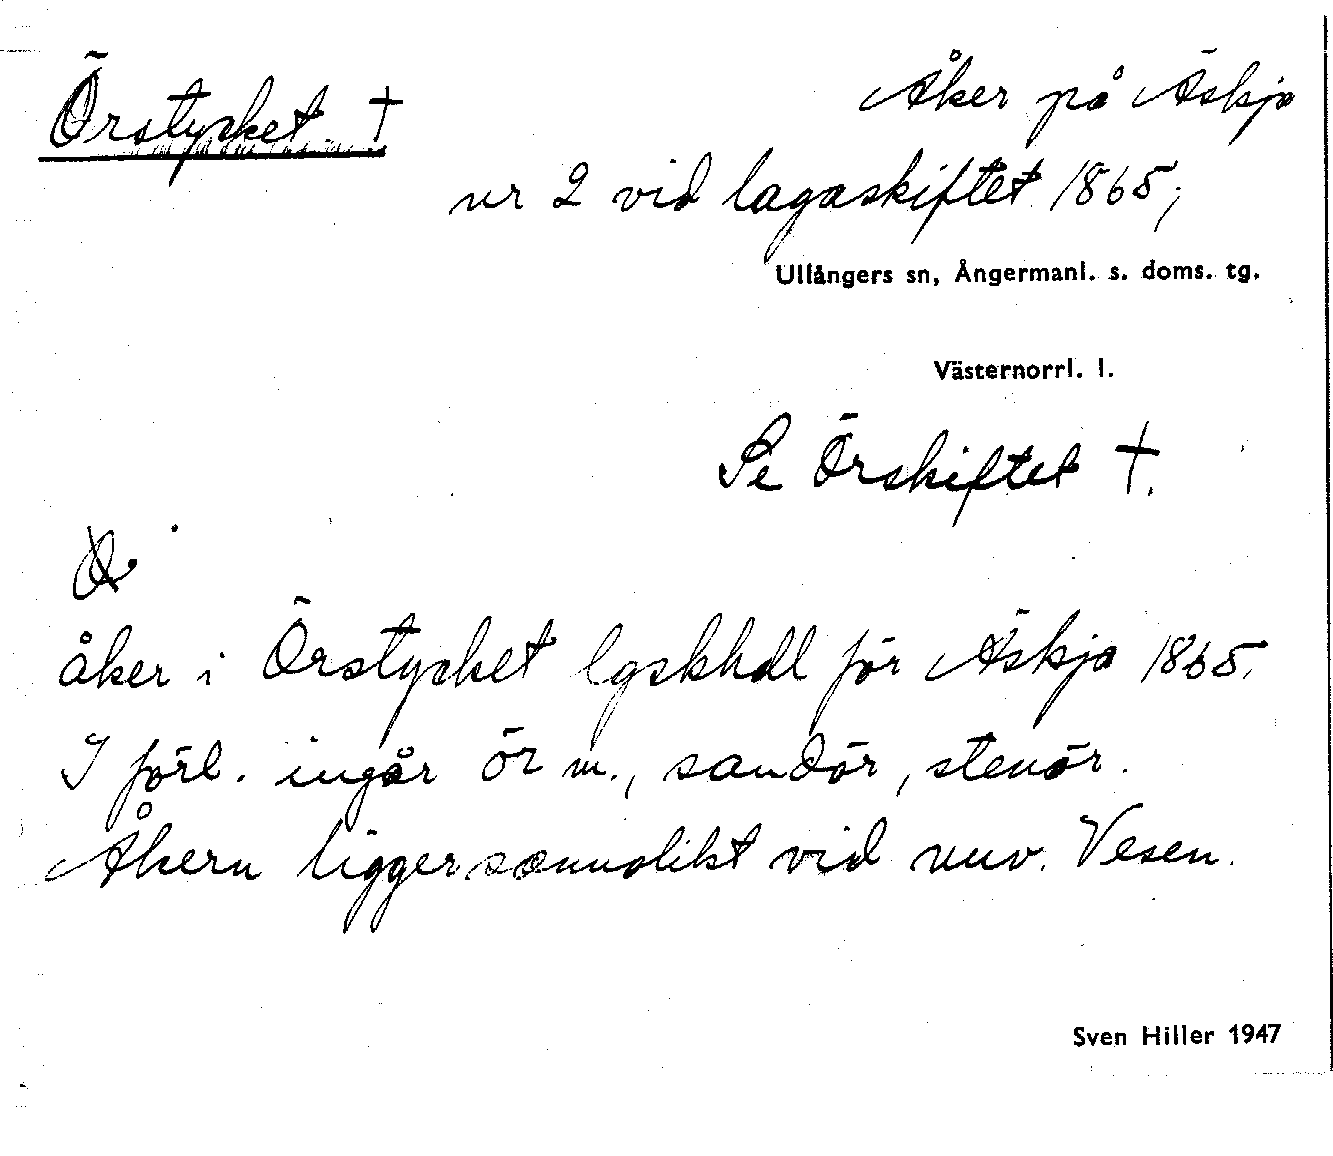 Örstycket †
Åker på Äskja
nr 2 vid lagaskiftet 1865;
Ullångers sn, Ångermanl. s. doms. tg.
Västernorrl. l.
Se Örskiftet †.
åker i Örstycket lgskhdl för Äskja 1865.
I förl. ingår ör m., sandör, stenör.
Åkern ligger sannolikt vid nuv. Vesen.
Sven Hiller 1947